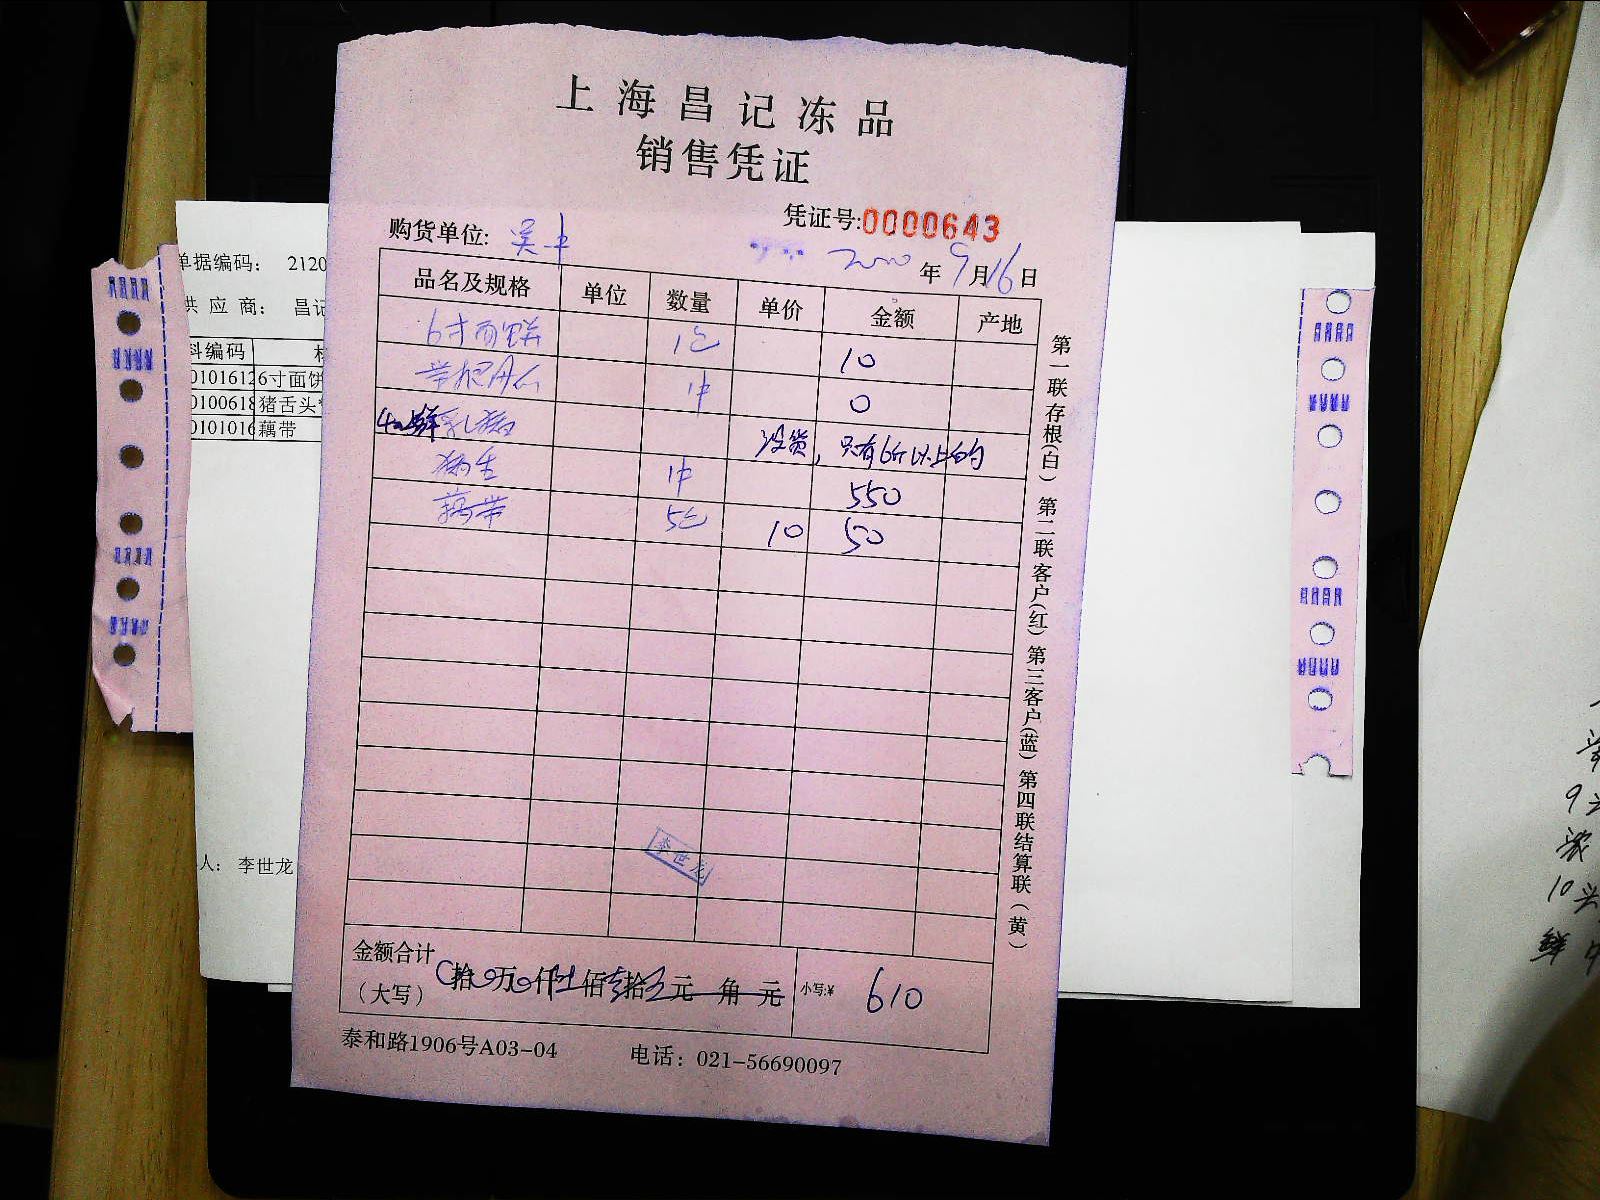 上海昌记冻品
销售凭证
凭证号:0000643
购货单位: 吴中
年9月16日
品名及规格 单位 数量 单价 金额 产地
6寸面饼 1包 10
1件 0
鲜乳猪 没货，只有6斤以上的
1件 550
藕带 5包 10 50
金额合计
（大写）
拾 万 仟 佰 拾 元 角 元
小写:¥ 610
泰和路1906号A03-04 电话：021-56690097
第一联存根(白) 第二联客户(红) 第三客户(蓝) 第四联结算联(黄)
李世龙
单据编码： 2120
供应商： 昌记
料编码
01016126寸面饼
0100618猪舌头*
0101016藕带
人： 李世龙
9头
浓
10头
鲜